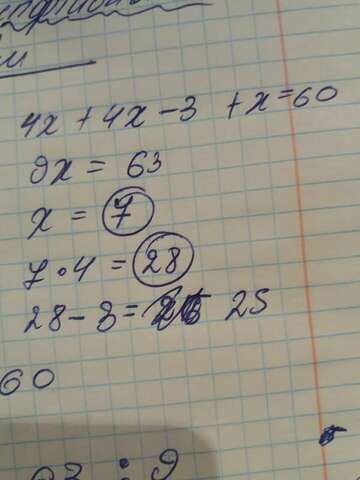 4x + 4x - 3 + x = 60
9x = 63
x = 7
7 · 4 = 28
28 - 3 = 25
60
63 : 9